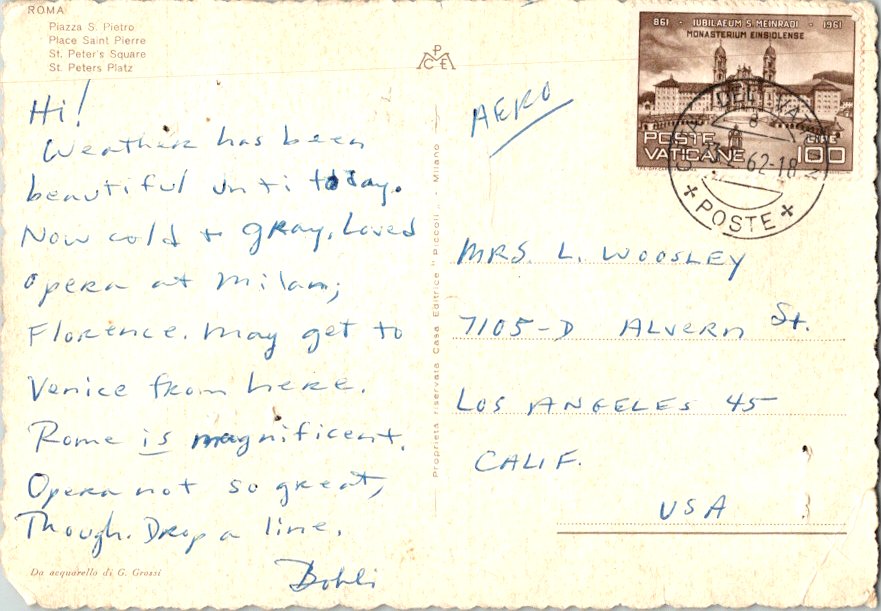 ROMA
Piazza S. Pietro
Place Saint Pierre
St. Peter's Square
St. Peters Platz
Hi!
Weather has been
beautiful until today.
Now cold + gray. Loved
opera at Milan,
Florence. May get to
Venice from here.
Rome is magnificent.
Opera not so great,
Though. Drop a line.
Da acquarello di G. Grossi
P
C E
Proprietà riservata Casa Editrice "Piccoli" - Milano
AERO
861 · IUBILAEUM S. MEINRADI · 1961
MONASTERIUM EINSIDLENSE
POSTE
VATICANE
LIRE
100
DEL VAT
62-18
POSTE
MRS L. WOOSLEY
7105-D ALVERN St.
LOS ANGELES 45
CALIF.
USA